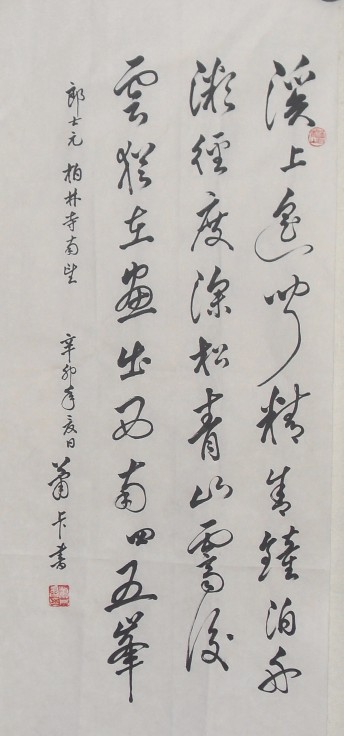 溪上遙聞精舍鐘泊舟
微徑度深松青山霽後
雲猶在畫出西南四五峯
郎士元 柏林寺南望 辛卯年夏日 蕭卡書